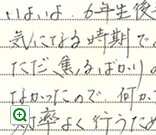 いよいよ、6年生後
気になる時期で
ただ焦るばかりの
なかったので 何か
効率よく行うため